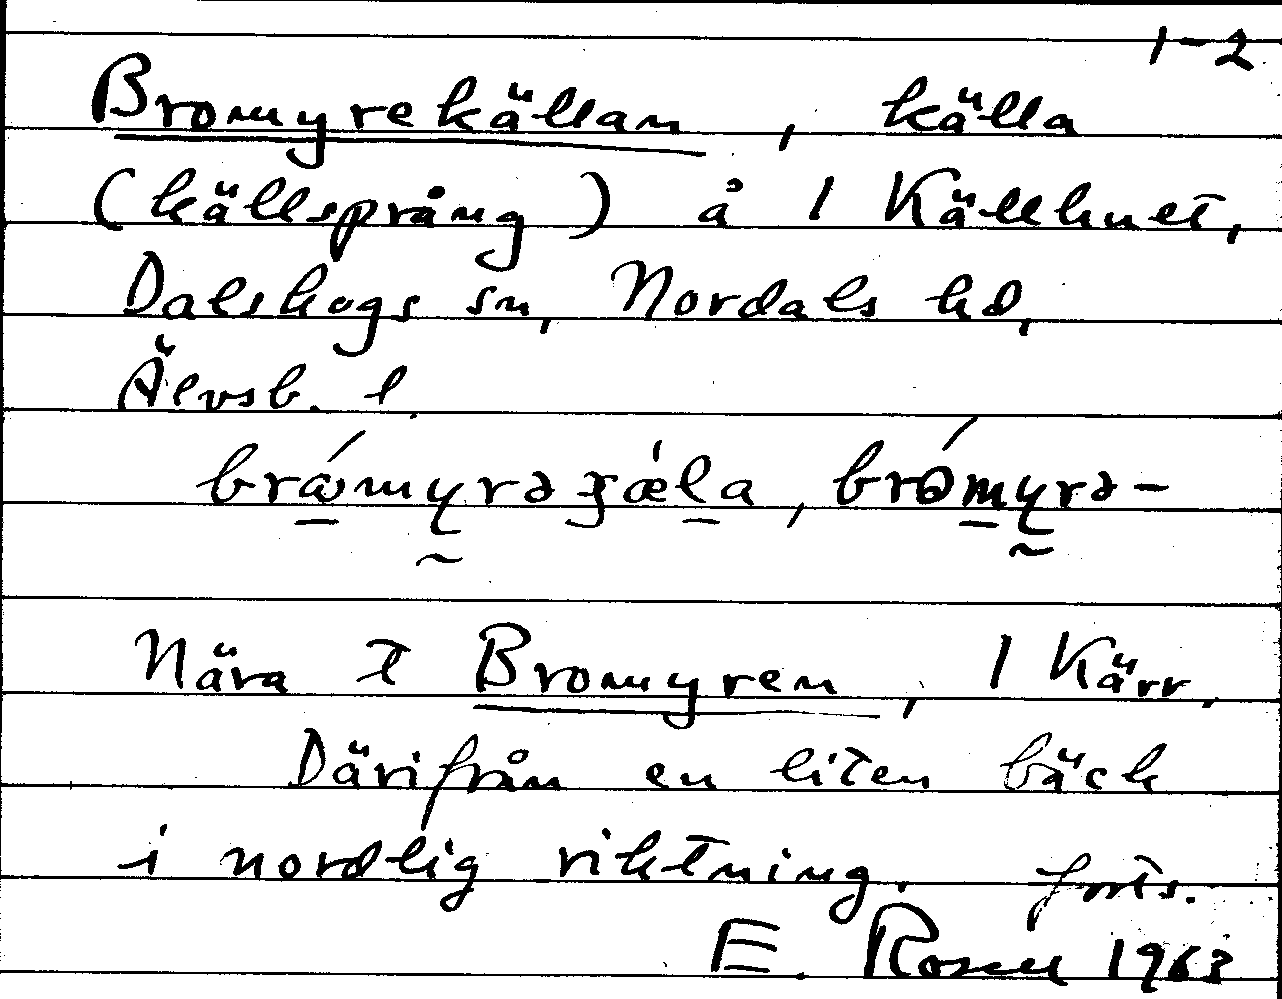 1-2
Bromyrekällan, källa
(källsprång) å 1 Källhult,
Dalskogs sn, Nordals hd,
Älvsb. l.
Nära t Bromyren, 1 Kärr.
Därifrån en liten bäck
i nordlig riktning. forts.
E. Rosell 1963